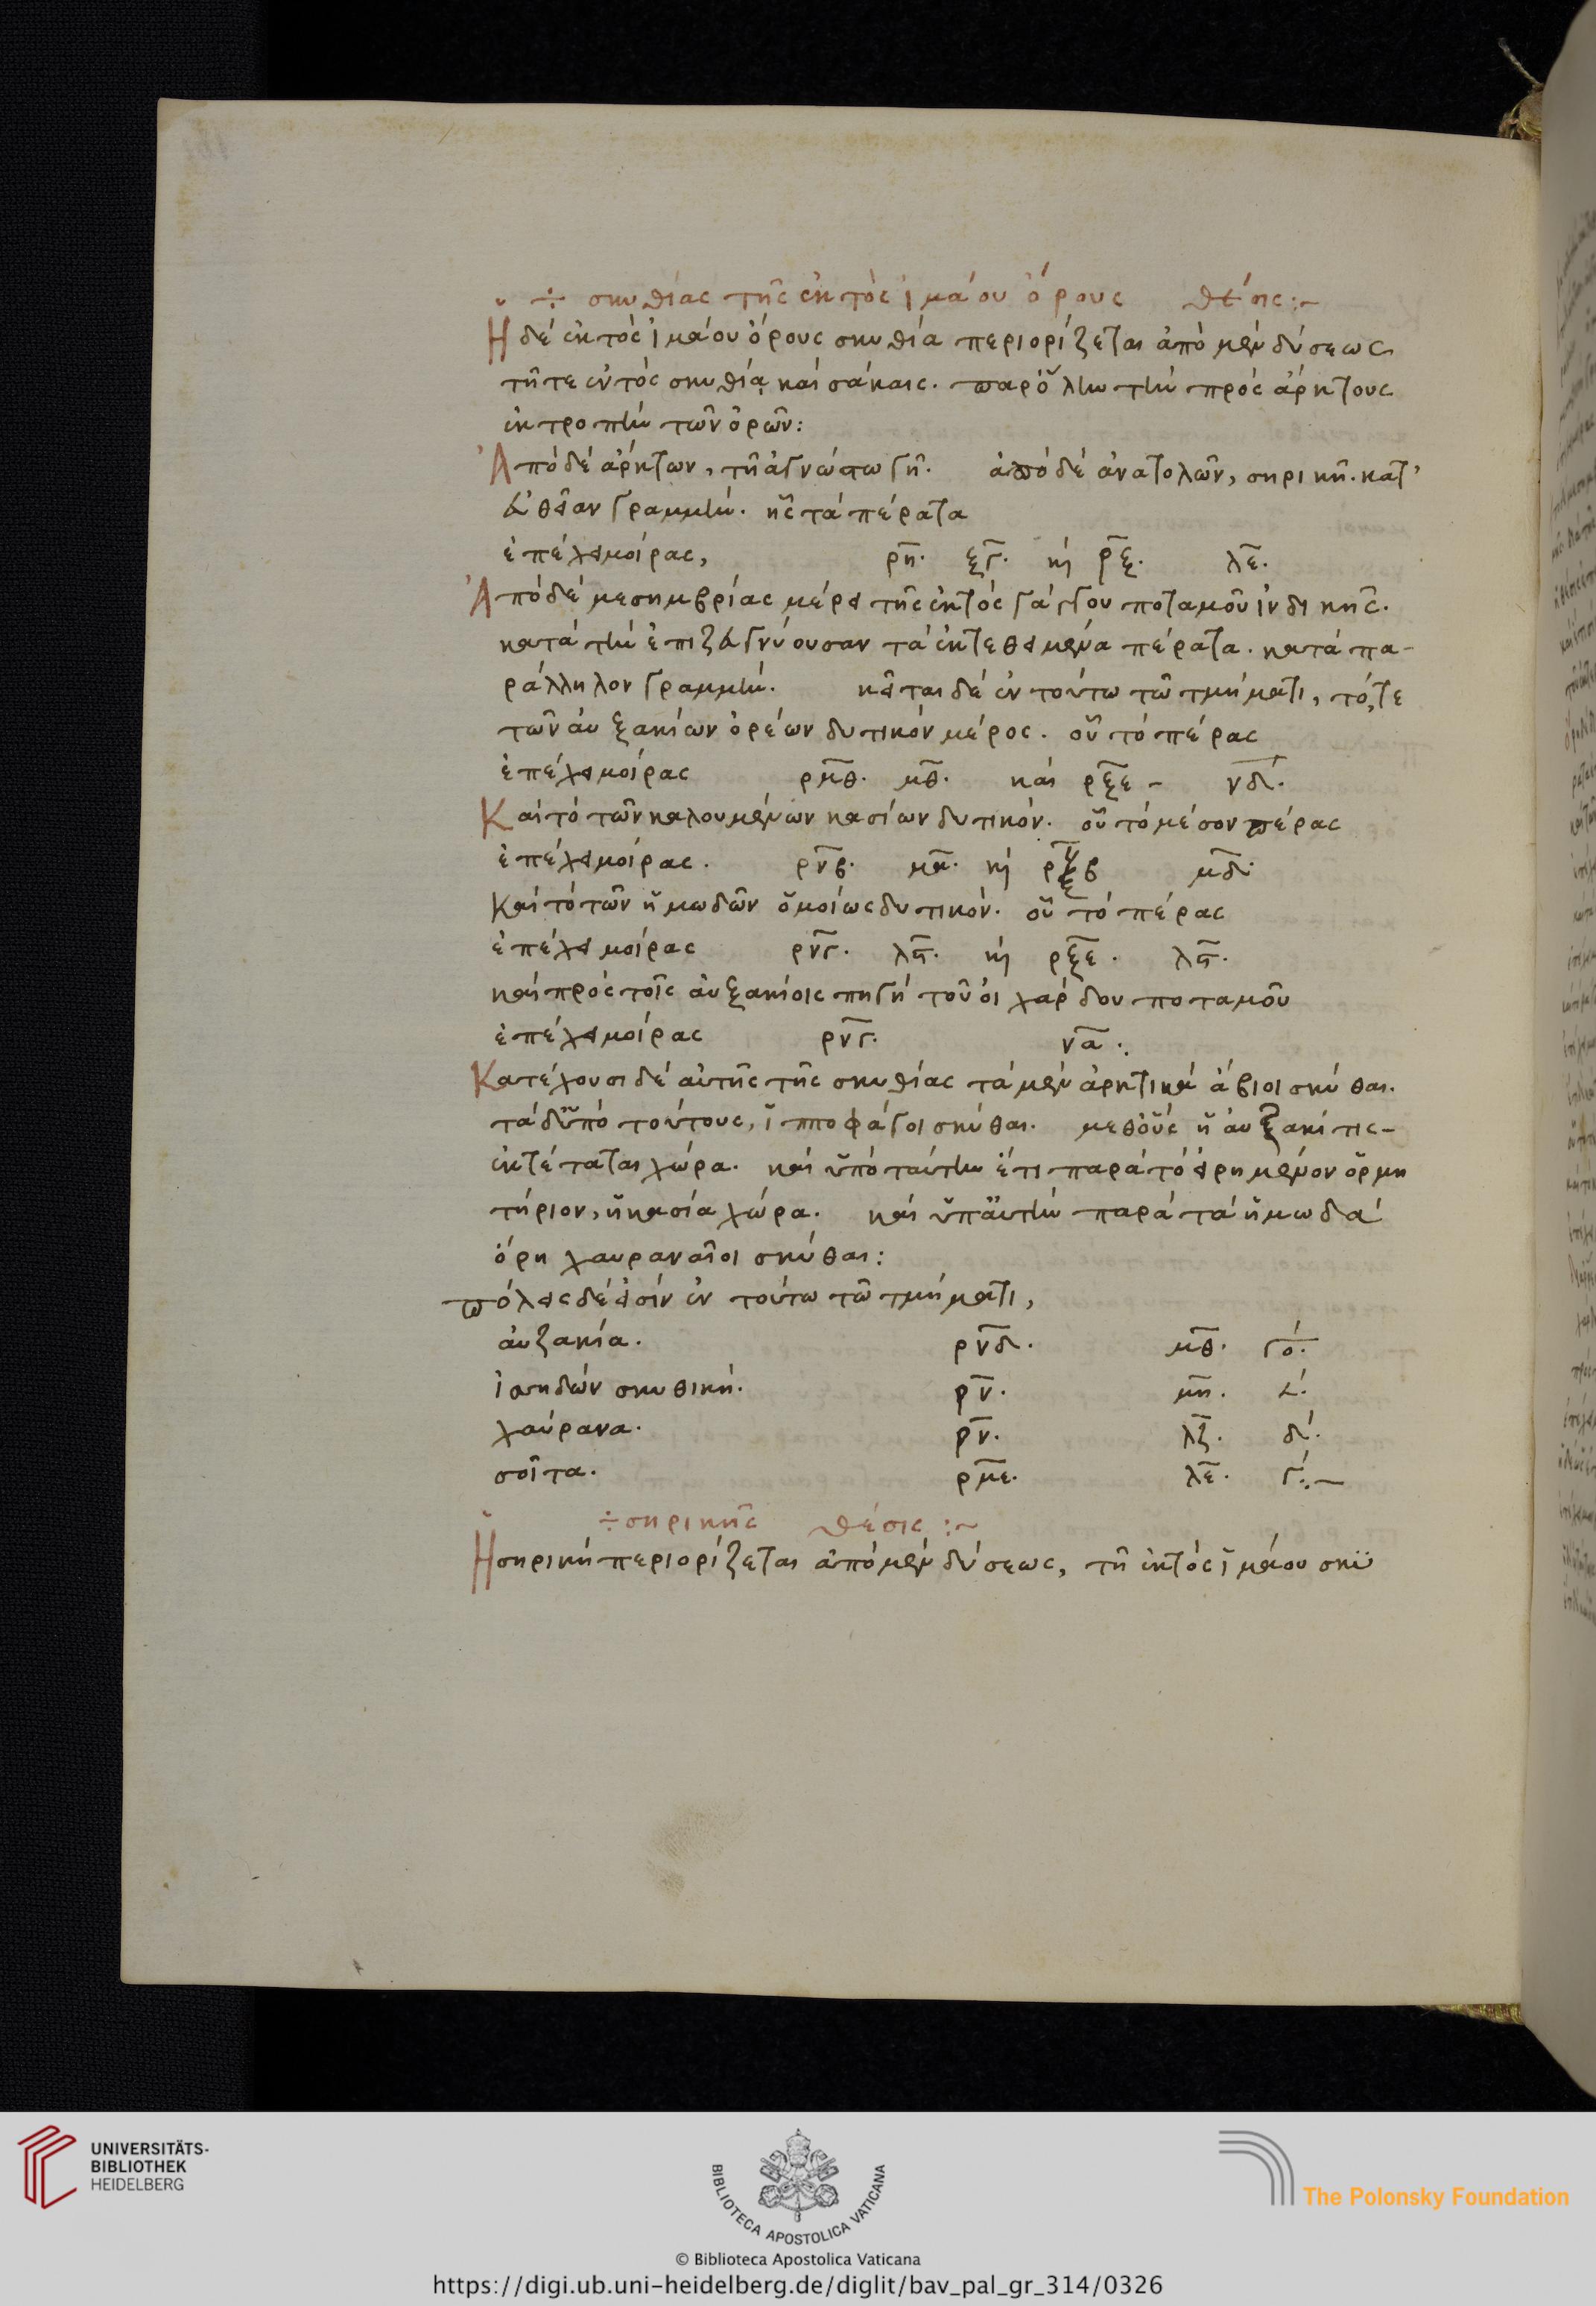 ÷ σκυθίας τῆς ἐκτὸς ἰμάου ὄρους θέσις:~
Ἡ δὲ ἐκτὸς ἰμάου ὄρους σκυθία περιορίζεται ἀπὸ μὲν δύσεως
τῆ τε ἐντὸς σκυθία καὶ σάκαις. παρ' ὅλην τὴν πρὸς ἄρκτους
ἐκτροπὴν τῶν ὀρῶν:
Ἀπὸ δὲ ἄρκτων, τῆ ἀγνώστω γῆ. ἀπὸ δὲ ἀνατολῶν, σηρικῆ. κατ'
εὐθεῖαν γραμμὴν. ἧς τὰ πέρατα
ἐπέχει μοίρας, ρν. ξγ. κ ρξ. λε.
Ἀπὸ δὲ μεσημβρίας μέρει τῆς ἐκτὸς γάγγου ποταμοῦ ἰνδικῆς.
κατὰ τὴν ἐπιζευγνύουσαν τὰ ἐκτεθειμένα πέρατα. κατὰ πα-
ράλληλον γραμμὴν. κεῖται δὲ ἐν τούτω τῶ τμήματι, τό, τε
τῶν αὐξακίων ὀρέων δυτικὸν μέρος. οὗ τὸ πέρας
ἐπέχει μοίρας ρμθ. μθ. καὶ ρξε - νδ.
Καὶ τὸ τῶν καλουμένων κασίων δυτικόν. οὗ τὸ μέσον πέρας
ἐπέχει μοίρας. ρνβ. μα. κ μδ.
καὶ τὸ τῶν ἠμωδῶν ὁμοίως δυτικόν. οὗ τὸ πέρας
ἐπέχει μοίρας ρνγ. λϛ. κ ρξε. λϛ.
καὶ πρὸς τοῖς αὐξακίοις πηγὴ τοῦ οἰχάρδου ποταμοῦ
ἐπέχει μοίρας ρνγ. να:
Κατέχουσι δὲ αὐτῆς τῆς σκυθίας τὰ μὲν ἀρκτικὰ ἄβιοι σκύθαι.
τὰ δ' ὑπὸ τούτους, ἱπποφάγοι σκύθαι. μεθ' οὓς ἡ αὐξακῖτις-
ἐκτέταται χώρα. καὶ ὑπὸ ταύτην ἔτι παρὰ τὸ εἰρημένον ὁρμη
τήριον, ἡ κασία χώρα. καὶ ὑπ' αὐτὴν παρὰ τὰ ἠμωδὰ
ὄρη χαυραναῖοι σκύθαι:
πόλεις δέ εἰσὶν ἐν τούτω τῶ τμήματι,
αὐζακία. ρνδ. μθ. γο.
ἰσηδών σκυθική. ρν. μη. 𐅵.
χαύρανα. ρν. λζ. δ.
σοῖτα. ρμε. λε. γ:~
÷ σηρικῆς θέσις:~
Ἡ σηρικὴ περιορίζεται ἀπὸ μὲν δύσεως, τῆ ἐκτὸς ἰμάου σκυ
UNIVERSITÄTS-
BIBLIOTHEK
HEIDELBERG
BIBLIOTECA APOSTOLICA VATICANA
The Polonsky Foundation
© Biblioteca Apostolica Vaticana
https://digi.ub.uni-heidelberg.de/diglit/bav_pal_gr_314/0326